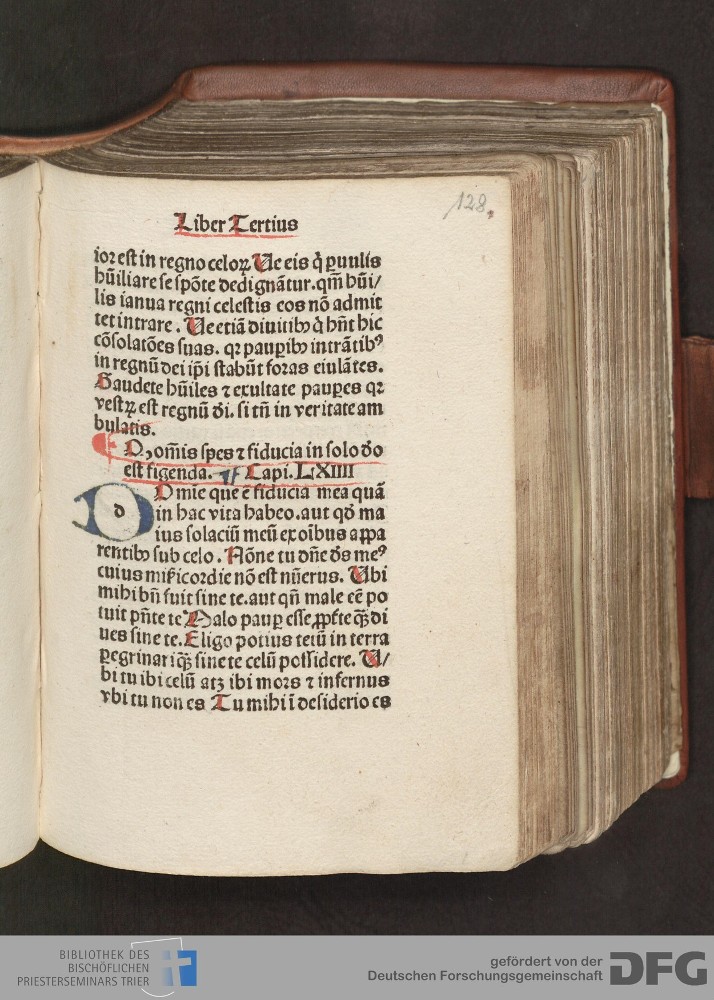 128.
Liber Tertius
ior est in regno celoꝝ Ve eis q̇ ꝑuulis
hūiliare se spōte dedignātur. qm̄ hūi/
lis ianua regni celestis eos nō admit
tet intrare. Ve etiā diuitibꝫ q̇ hn̄t hic
cōsolatōes suas. qꝛ pauꝑibꝫ intrātibꝰ
in regnū dei ip̄i stabūt foras eiulātes.
Gaudete hūiles ⁊ exultate pauꝑes qꝛ
vestꝝ est regnū di. si tn̄ in veritate am
bulatis.
om̄is spes ⁊ fiducia in solo do
est figenda. Capi. LXIIII
d Dmie que ē fiducia mea quā
in hac vita habeo. aut qd̓ ma
ius solaciū meū ex oībus appa
rentibꝫ sub celo. Nōne tu dn̄e ds̄ meꝰ
cuius mi&icordie nō est nūerus. Vbi
mihi bn̄ fuit sine te. aut qn̄ male eē po
tuit pn̄te te Malo pauꝑ esse ꝓpt̄ te qꝫ di
ues sine te. Eligo potius tecū in terra
ꝑegrinari qꝫ sine te celū possidere. V/
bi tu ibi celū atꝫ ibi mors ⁊ infernus
vbi tu non es Tu mihi ī desiderio es
BIBLIOTHEK DES
BISCHÖFLICHEN
PRIESTERSEMINARS TRIER
gefördert von der
Deutschen Forschungsgemeinschaft DFG